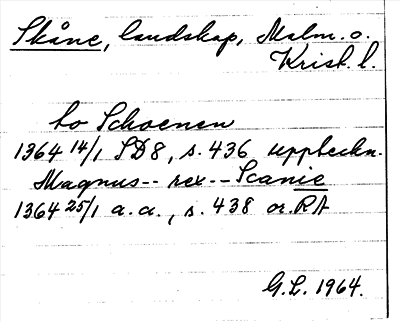 Skåne, landskap, Malm. o.
Krist. l.
to Schoenen
1364 14/1 SD8, s. 436 uppteckn.
Magnus-- rex-- Scanie
1364 25/1 a.a., s. 438 or. RA
G.L. 1964.